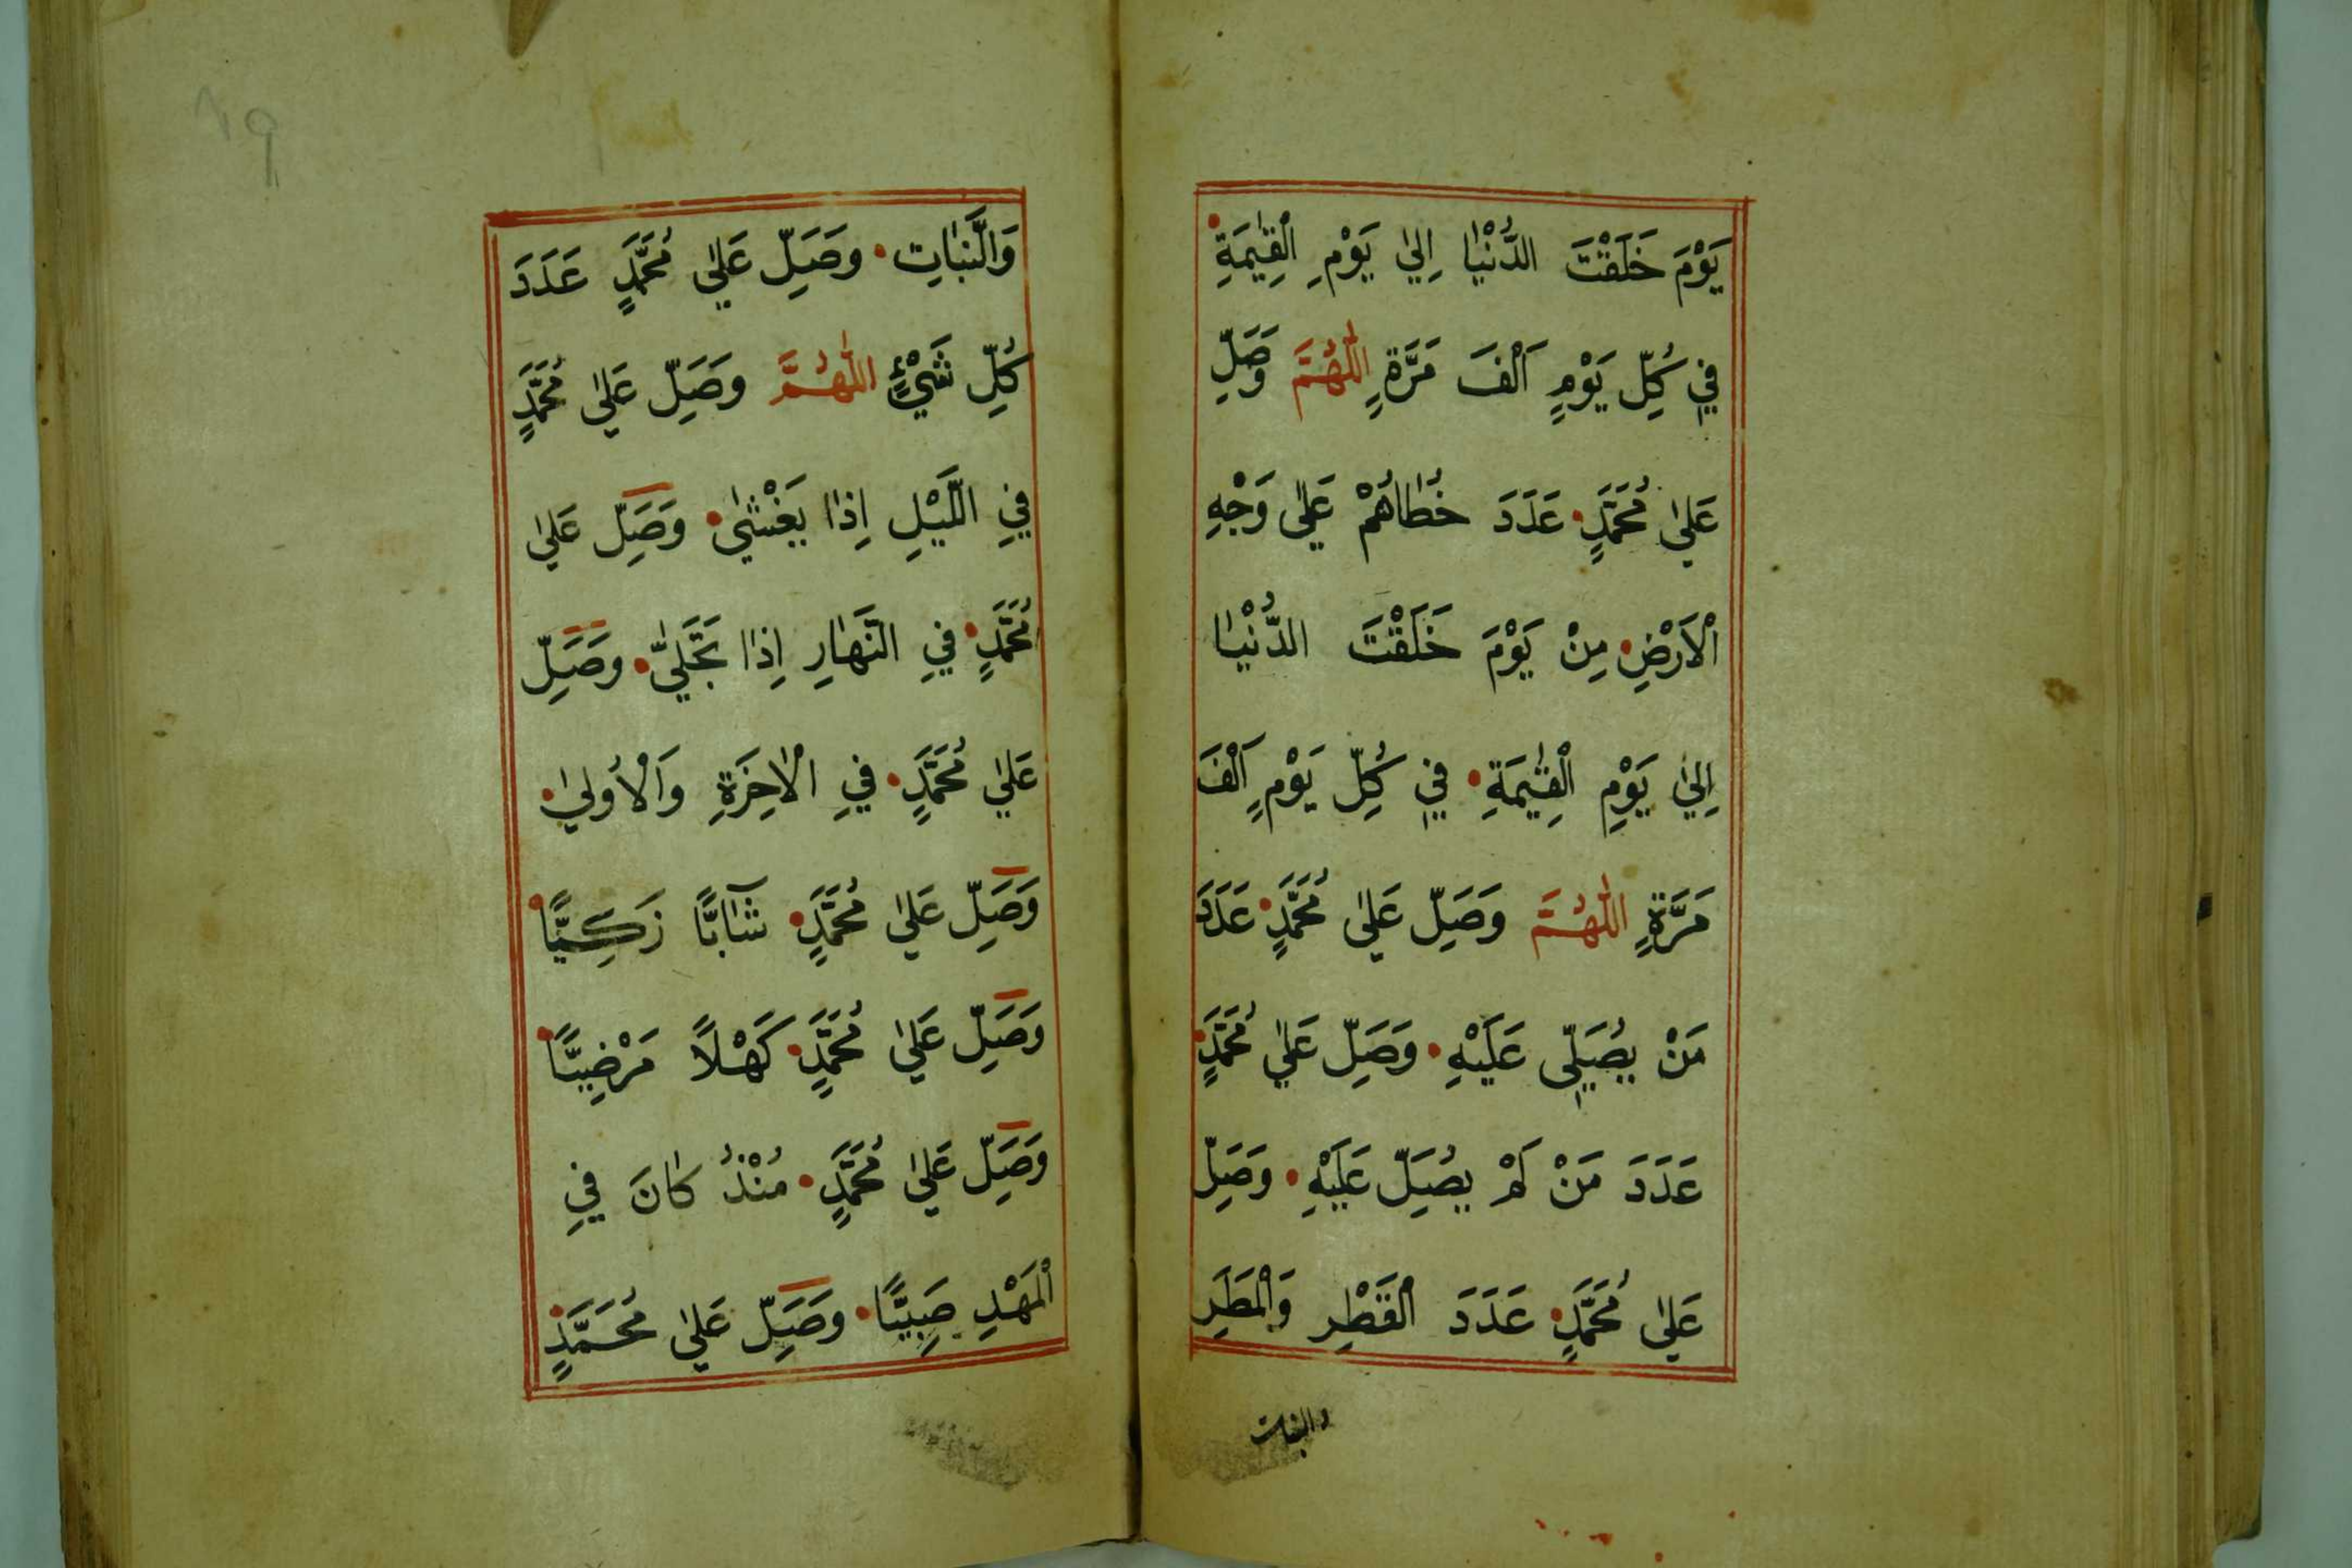 يَوْمَ خَلَقْتَ الدُّنْيَا اِلٰي يَوْمِ الْقِيٰمَةِ
فِي كُلِّ يَوْمٍ اَلْفَ مَرَّةٍ اَللّٰهُمَّ وَصَلِّ
عَلٰي مُحَمَّدٍ عَدَدَ خُطَاهُمْ عَلٰي وَجْهِ
الْاَرْضِ مِنْ يَوْمَ خَلَقْتَ الدُّنْيَا
اِلٰي يَوْمِ الْقِيٰمَةِ فِي كُلِّ يَوْمٍ اَلْفَ
مَرَّةٍ اَللّٰهُمَّ وَصَلِّ عَلٰي مُحَمَّدٍ عَدَدَ
مَنْ يُصَلِّي عَلَيْهِ وَصَلِّ عَلٰي مُحَمَّدٍ
عَدَدَ مَنْ لَمْ يُصَلِّ عَلَيْهِ وَصَلِّ
عَلٰي مُحَمَّدٍ عَدَدَ الْقَطْرِ وَالْمَطَرِ
والنبات
١٩
وَالنَّبَاتِ وَصَلِّ عَلٰي مُحَمَّدٍ عَدَدَ
كُلِّ شَيْءٍ اَللّٰهُمَّ وَصَلِّ عَلٰي مُحَمَّدٍ
فِي اللَّيْلِ اِذَا يَغْشٰي وَصَلِّ عَلٰي
مُحَمَّدٍ فِي النَّهَارِ اِذَا تَجَلّٰي وَصَلِّ
عَلٰي مُحَمَّدٍ فِي الْاٰخِرَةِ وَالْاُولٰي
وَصَلِّ عَلٰي مُحَمَّدٍ شَآبًّا زَكِيًّا
وَصَلِّ عَلٰي مُحَمَّدٍ كَهْلًا مَرْضِيًّا
وَصَلِّ عَلٰي مُحَمَّدٍ مُنْذُ كَانَ فِي
الْمَهْدِ صَبِيًّا وَصَلِّ عَلٰي مُحَمَّدٍ